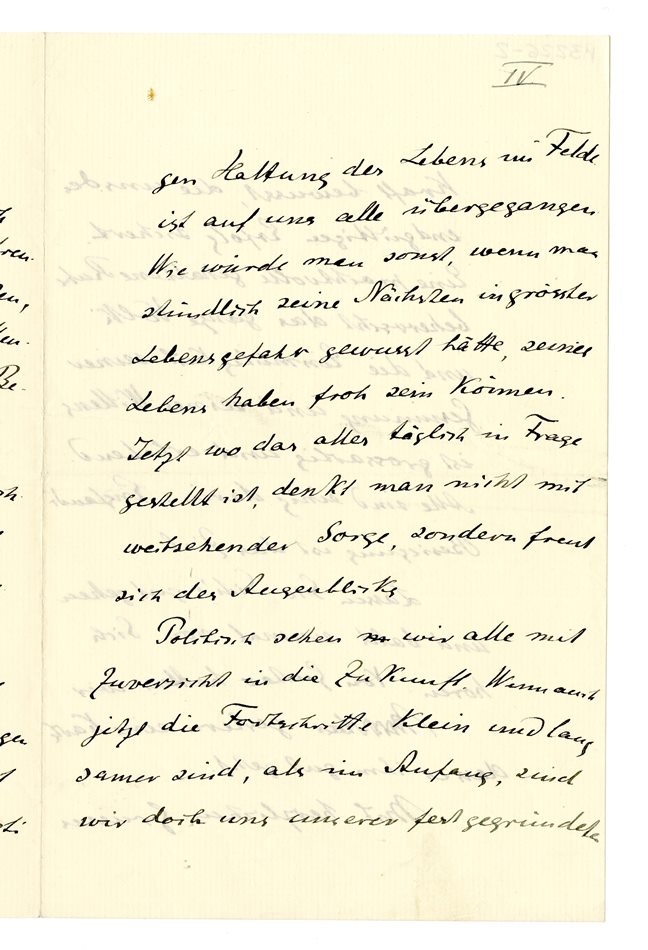 IV.
gen Haltung des Lebens im Felde
ist auf uns alle übergegangen
Wie würde man sonst, wenn man
stündlich seine Nächsten in grösster
Lebensgefahr gewusst hätte, seines
Lebens haben froh sein können.
Jetzt wo das alles täglich in Frage
gestellt ist, denkt man nicht mit
weitsehender Sorge, sondern freut
sich des Augenblicks
Politisch sehen wir alle mit
Zuversicht in die Zukunft. Wenn auch
jetzt die Fortschritte klein und lang
samer sind, als im Anfang, sind
wir doch uns unserer festgegründeten